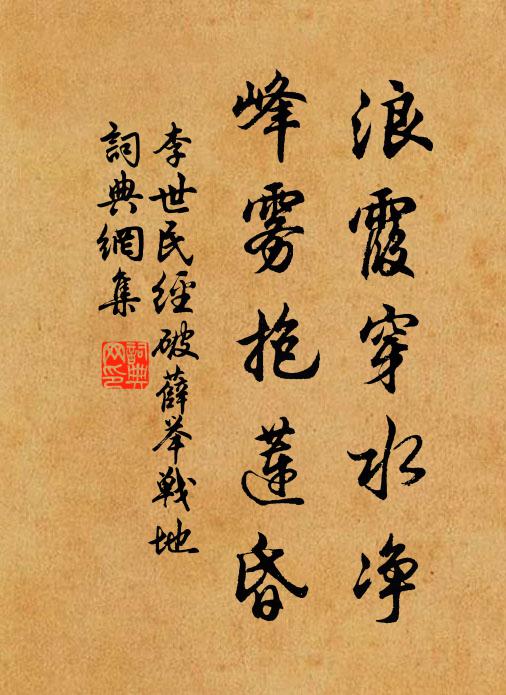 浪霞穿水净
峰雾抱莲昏
李世民經破薛举戰地
詞典網集
詞典网印